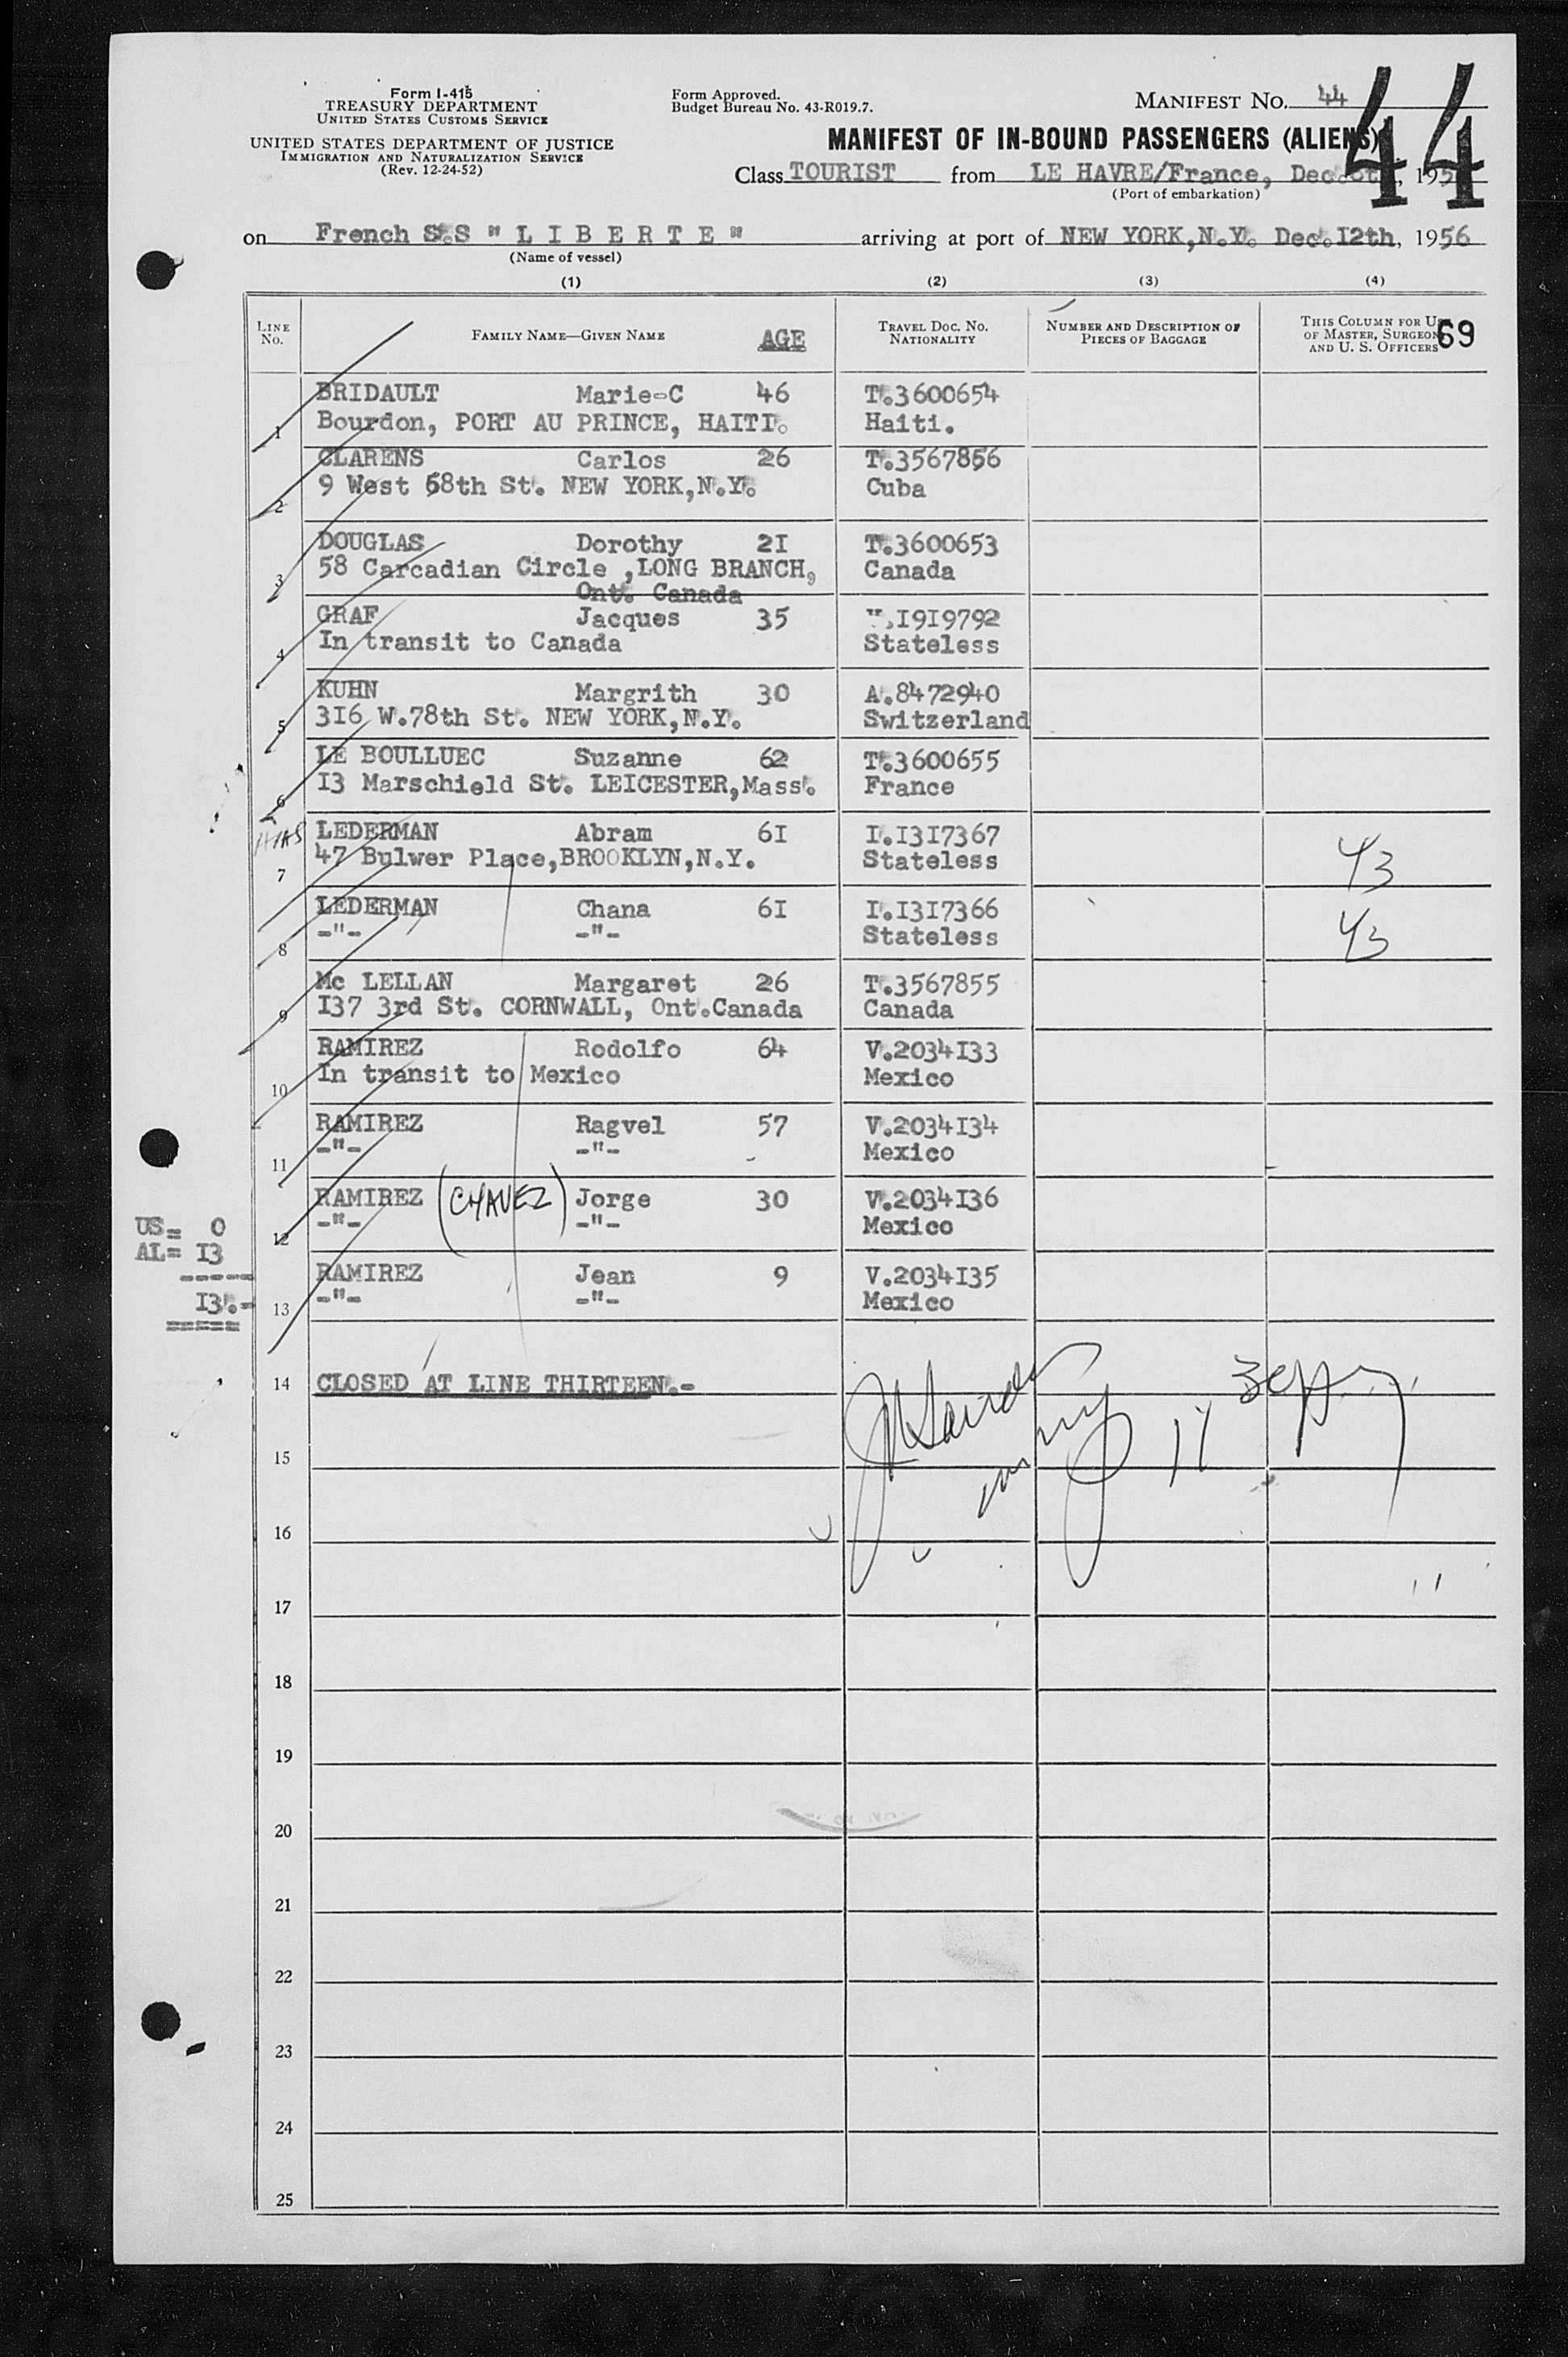 Form I-415
TREASURY DEPARTMENT
UNITED STATES CUSTOMS SERVICE
UNITED STATES DEPARTMENT OF JUSTICE
IMMIGRATION AND NATURALIZATION SERVICE
(Rev. 12-24-52)
Form Approved.
Budget Bureau No. 43-R019.7.
MANIFEST NO. 44
44
MANIFEST OF IN-BOUND PASSENGERS (ALIENS)
Class TOURIST from LE HAVRE/France, Dec. , 195
(Port of embarkation)
on French S.S " L I B E R T E " arriving at port of NEW YORK,N.Y. Dec.I2th, 1956
(Name of vessel)
(1) (2) (3) (4)
LINE No. FAMILY NAME—GIVEN NAME AGE TRAVEL DOC. NO. NATIONALITY NUMBER AND DESCRIPTION OF PIECES OF BAGGAGE THIS COLUMN FOR USE OF MASTER, SURGEON, AND U. S. OFFICERS 69
BRIDAULT Marie-C 46 T.3600654
1 Bourdon, PORT AU PRINCE, HAITI. Haiti.
CLARENS Carlos 26 T.3567856
2 9 West 68th St. NEW YORK,N.Y. Cuba
DOUGLAS Dorothy 2I T.3600653
3 58 Carcadian Circle ,LONG BRANCH, Canada
Ont. Canada
GRAF Jacques 35 .I9I9792
4 In transit to Canada Stateless
KUHN Margrith 30 A.8472940
5 3I6 W.78th St. NEW YORK,N.Y. Switzerland
LE BOULLUEC Suzanne 62 T.3600655
6 I3 Marschield St. LEICESTER,Mass. France
HIAS LEDERMAN Abram 6I I.I3I7367
7 47 Bulwer Place,BROOKLYN,N.Y. Stateless
LEDERMAN Chana 6I I.I3I7366
8 -"- -"- Stateless
Mc LELLAN Margaret 26 T.3567855
9 I37 3rd St. CORNWALL, Ont.Canada Canada
RAMIREZ Rodolfo 64 V.2034I33
10 In transit to Mexico Mexico
RAMIREZ Ragvel 57 V.2034I34
11 -"- -"- Mexico
RAMIREZ (CHAVEZ) Jorge 30 V.2034I36
12 -"- -"- Mexico
US= 0
AL= I3
-----
I3.-
=====
RAMIREZ Jean 9 V.2034I35
13 -"- -"- Mexico
14 CLOSED AT LINE THIRTEEN.-
15
16
17
18
19
20
21
22
23
24
25